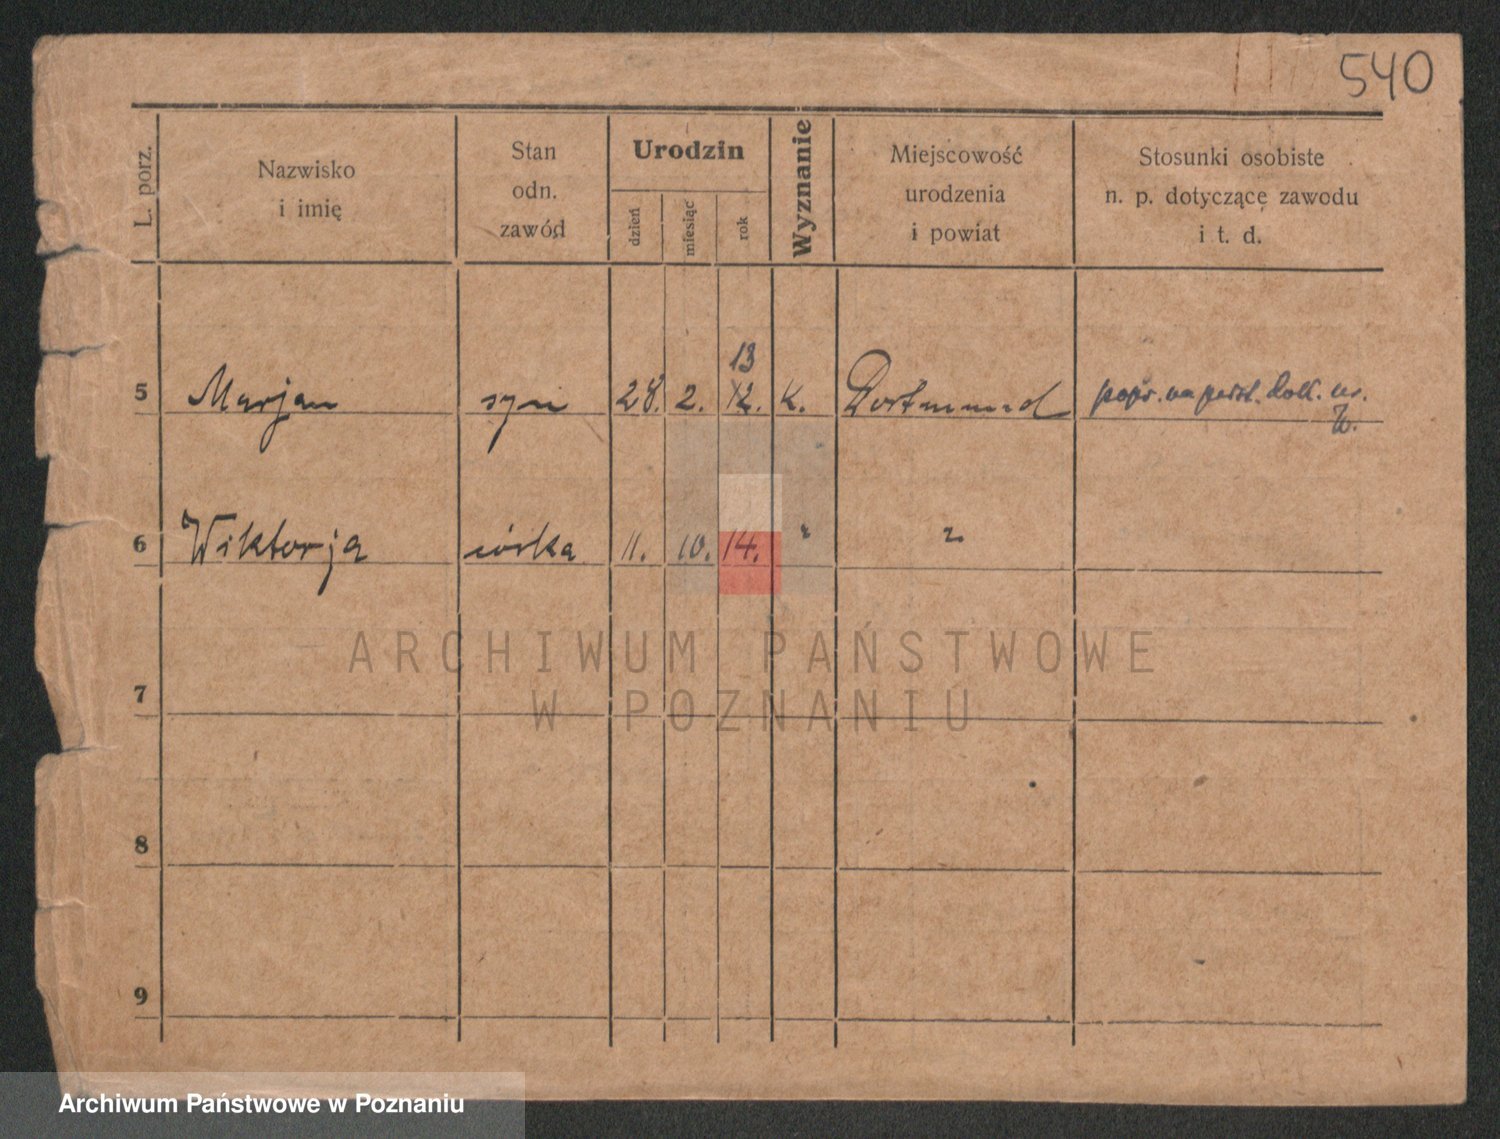 540
L. porz.
Nazwisko
i imię
Stan
odn.
zawód
Urodzin
dzień
miesiąc
rok
Wyznanie
Miejscowość
urodzenia
i powiat
Stosunki osobiste
n. p. dotyczące zawodu
i t. d.
13
5 Marjan syn 28. 2. 12. k. Dortmund popr. na podst. dok. ur.
6 Wiktorja córka 11. 10. 14. " "
ARCHIWUM PAŃSTWOWE
W POZNANIU
7
8
9
Archiwum Państwowe w Poznaniu